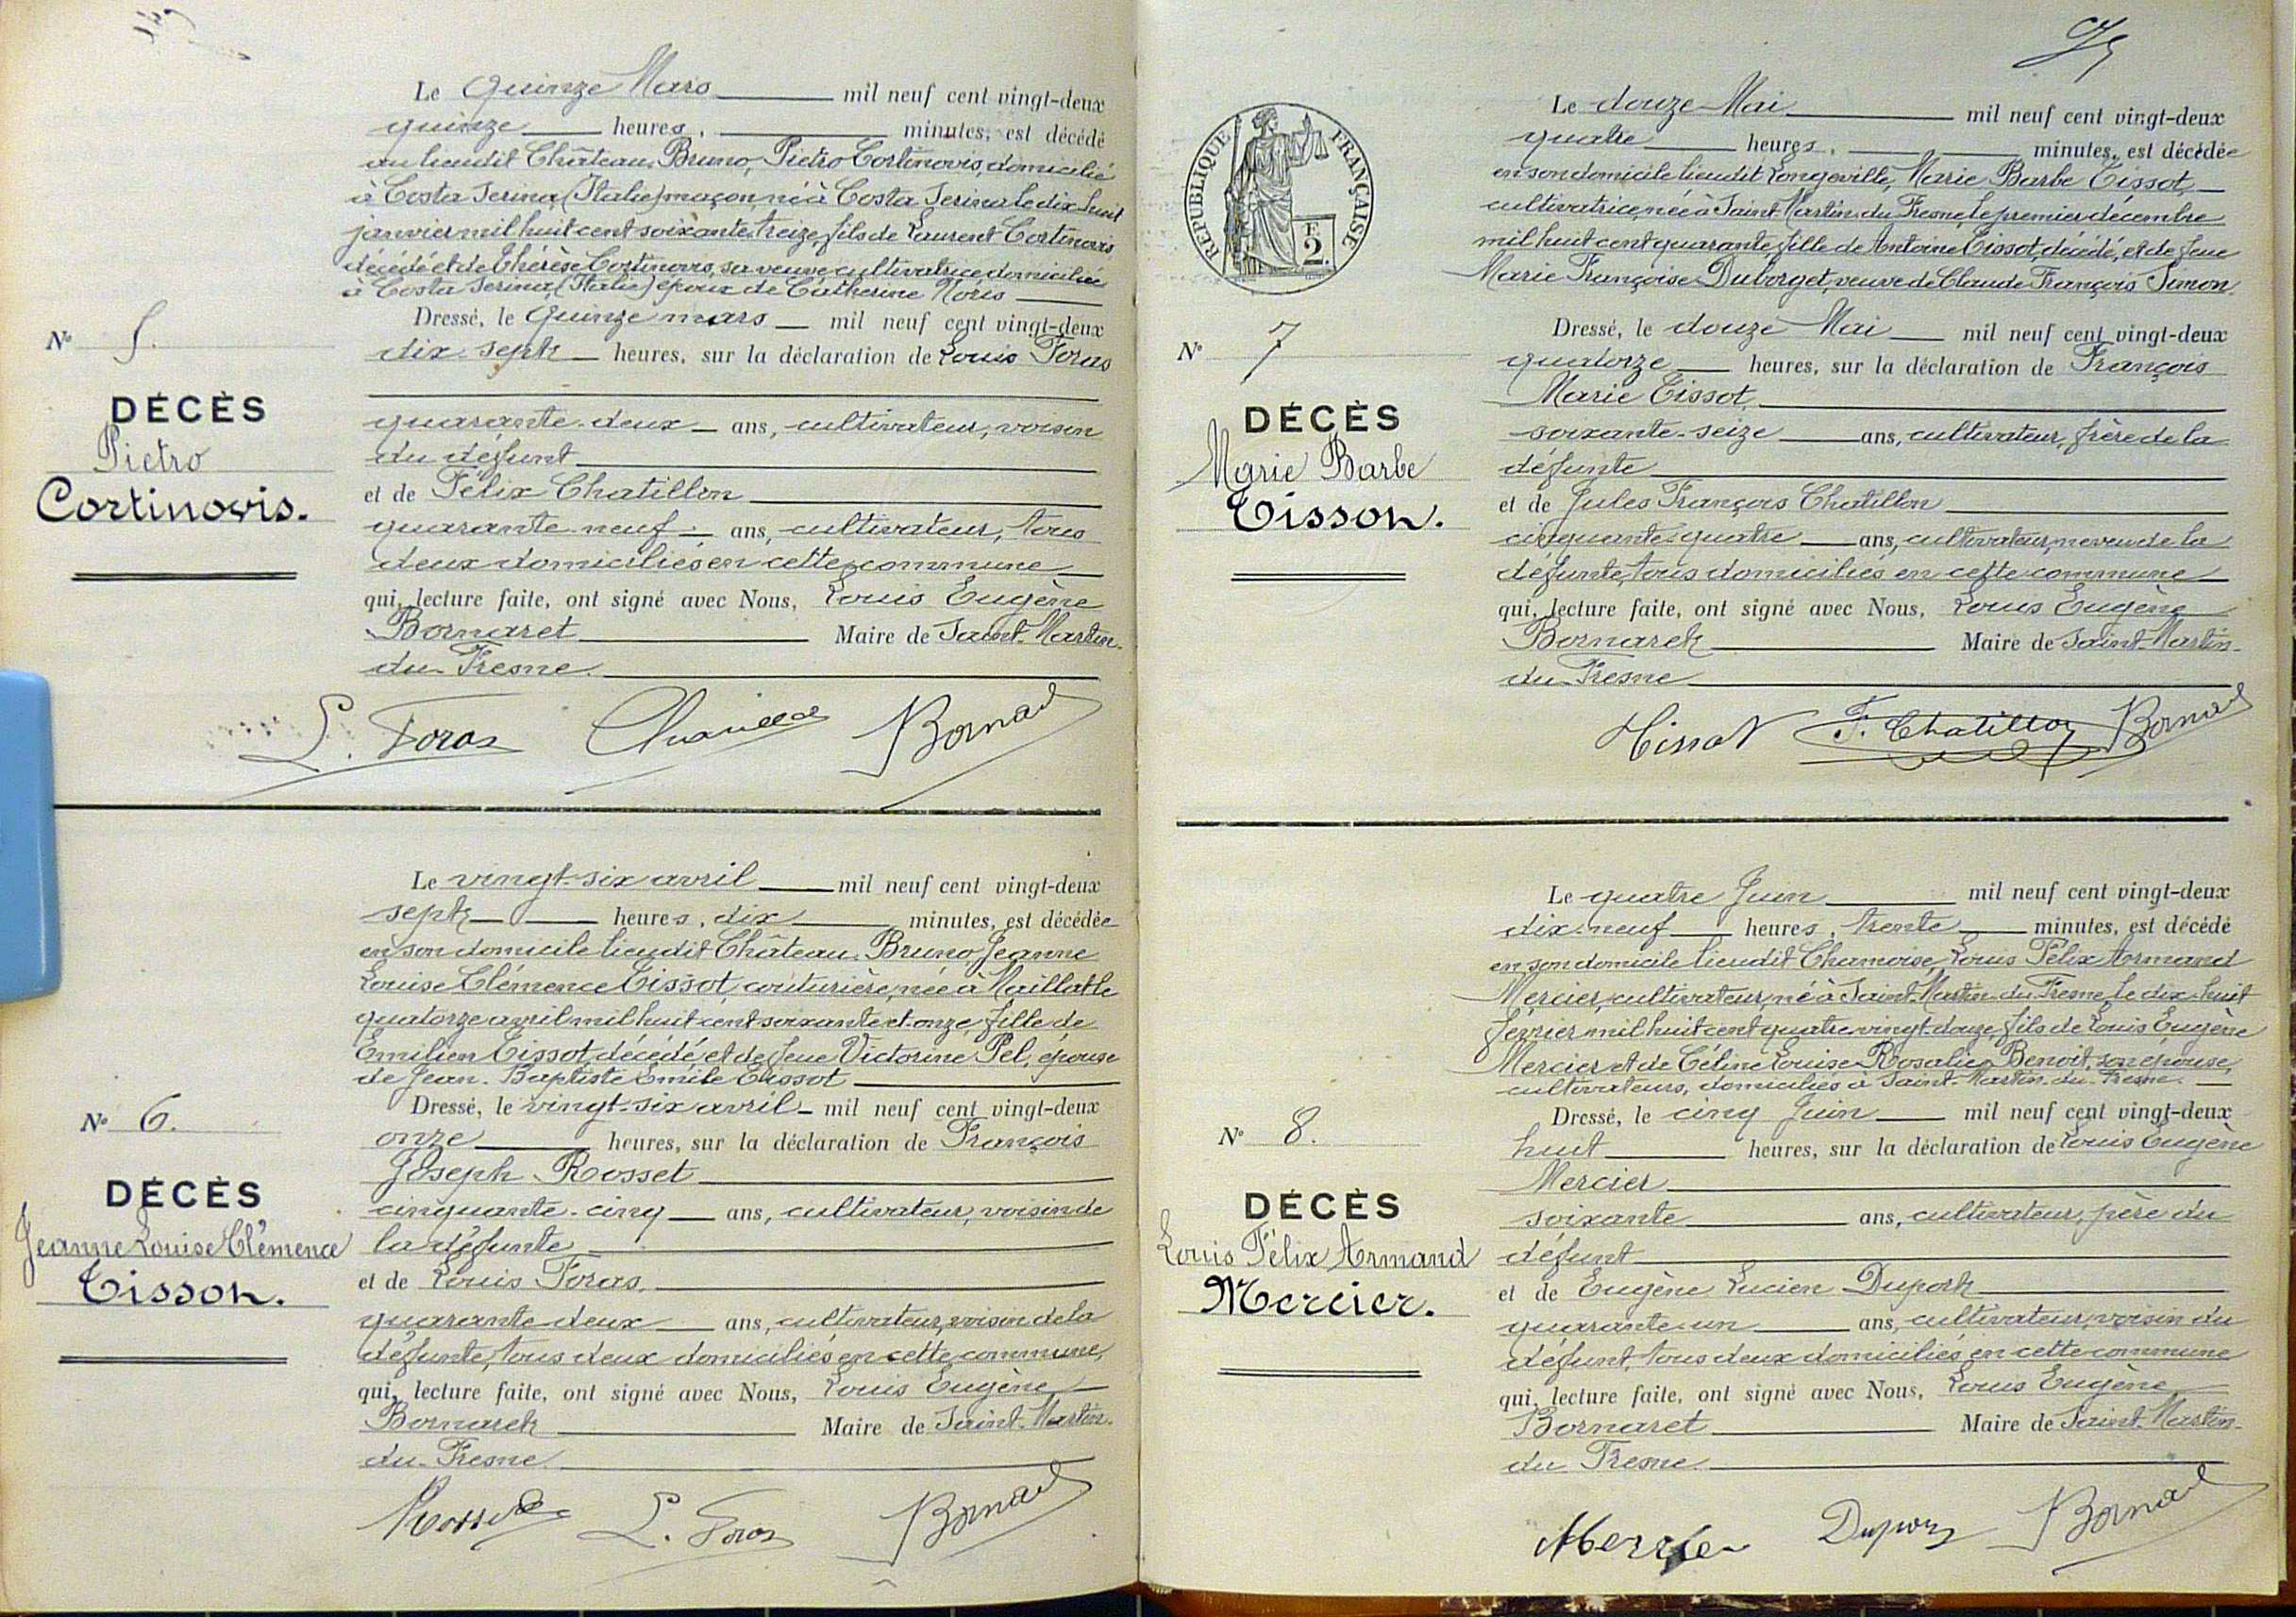 Le quinze Mars mil neuf cent vingt-deux
quinze heures, minutes, est décédé
au lieudit Château-Bruno, Pietro Cortinovis, domicilié
à Costa Serina (Italie) maçon, né à Costa Serina le dix huit
janvier mil huit cent soixante treize, fils de Laurent Cortinovis
décédé et de Thérèse Cortinovis, sa veuve cultivatrice, domiciliée
à Costa Serina, (Italie) époux de Catherine Noris
Dressé, le quinze mars mil neuf cent vingt-deux
dix sept heures, sur la déclaration de Louis Foras
quarante-deux ans, cultivateur, voisin
du défunt
et de Félix Chatillon
quarante-neuf ans, cultivateur, tous
deux domiciliés en cette commune
qui, lecture faite, ont signé avec Nous, Louis Eugène
Bornaret Maire de Saint-Martin-
du-Fresne.
L. Foras
N° 5.
DÉCÈS
Pietro
Cortinovis.
Le vingt-six avril mil neuf cent vingt-deux
sept heures, dix minutes, est décédée
en son domicile lieudit Château-Bruno, Jeanne
Louise Clémence Tissot, couturière, née à Maillat le
quatorze avril mil huit cent soixante et onze, fille de
Emilien Tissot, décédé et de feue Victorine Pel, épouse
de Jean-Baptiste Emile Tissot
Dressé, le vingt-six avril mil neuf cent vingt-deux
onze heures, sur la déclaration de François
Joseph Rosset
cinquante-cinq ans, cultivateur, voisin de
la défunte
et de Louis Foras.
quarante-deux ans, cultivateur, voisin de la
défunte, tous deux domiciliés en cette commune,
qui, lecture faite, ont signé avec Nous, Louis Eugène
Bornaret Maire de Saint-Martin-
du-Fresne.
L. Foras
N° 6.
DÉCÈS
Jeanne Louise Clémence
Tissot.
RÉPUBLIQUE FRANÇAISE
F
2.
Le douze Mai mil neuf cent vingt-deux
quatre heures, minutes, est décédée
en son domicile lieudit Longeville, Marie Barbe Tissot,
cultivatrice, née à Saint-Martin-du-Fresne, le premier décembre
mil huit cent quarante, fille de Antoine Tissot, décédé, et de feue
Marie Françoise Duborget, veuve de Claude François Simon.
Dressé, le douze Mai mil neuf cent vingt-deux
quatorze heures, sur la déclaration de François
Marie Tissot,
soixante-seize ans, cultivateur, frère de la
défunte
et de Jules François Chatillon
cinquante-quatre ans, cultivateur, neveu de la
défunte, tous domiciliés en cette commune
qui, lecture faite, ont signé avec Nous, Louis Eugène
Bornaret Maire de Saint-Martin-
du-Fresne
Tissot F. Chatillon
N° 7
DÉCÈS
Marie Barbe
Tissot.
Le quatre Juin mil neuf cent vingt-deux
dix-neuf heures, trente minutes, est décédé
en son domicile lieudit Chamoise, Louis Félix Armand
Mercier, cultivateur, né à Saint-Martin-du-Fresne, le dix-huit
février mil huit cent quatre vingt-douze, fils de Louis Eugène
Mercier et de Céline Louise Rosalie Benoit, son épouse,
cultivateurs, domiciliés à Saint-Martin-du-Fresne.
Dressé, le cinq Juin mil neuf cent vingt-deux
huit heures, sur la déclaration de Louis Eugène
Mercier
soixante ans, cultivateur, père du
défunt
et de Eugène Lucien Duport
quarante-un ans, cultivateur, voisin du
défunt, tous deux domiciliés en cette commune
qui, lecture faite, ont signé avec Nous, Louis Eugène
Bornaret Maire de Saint-Martin-
du-Fresne.
Mercier Duport
N° 8.
DÉCÈS
Louis Félix Armand
Mercier.